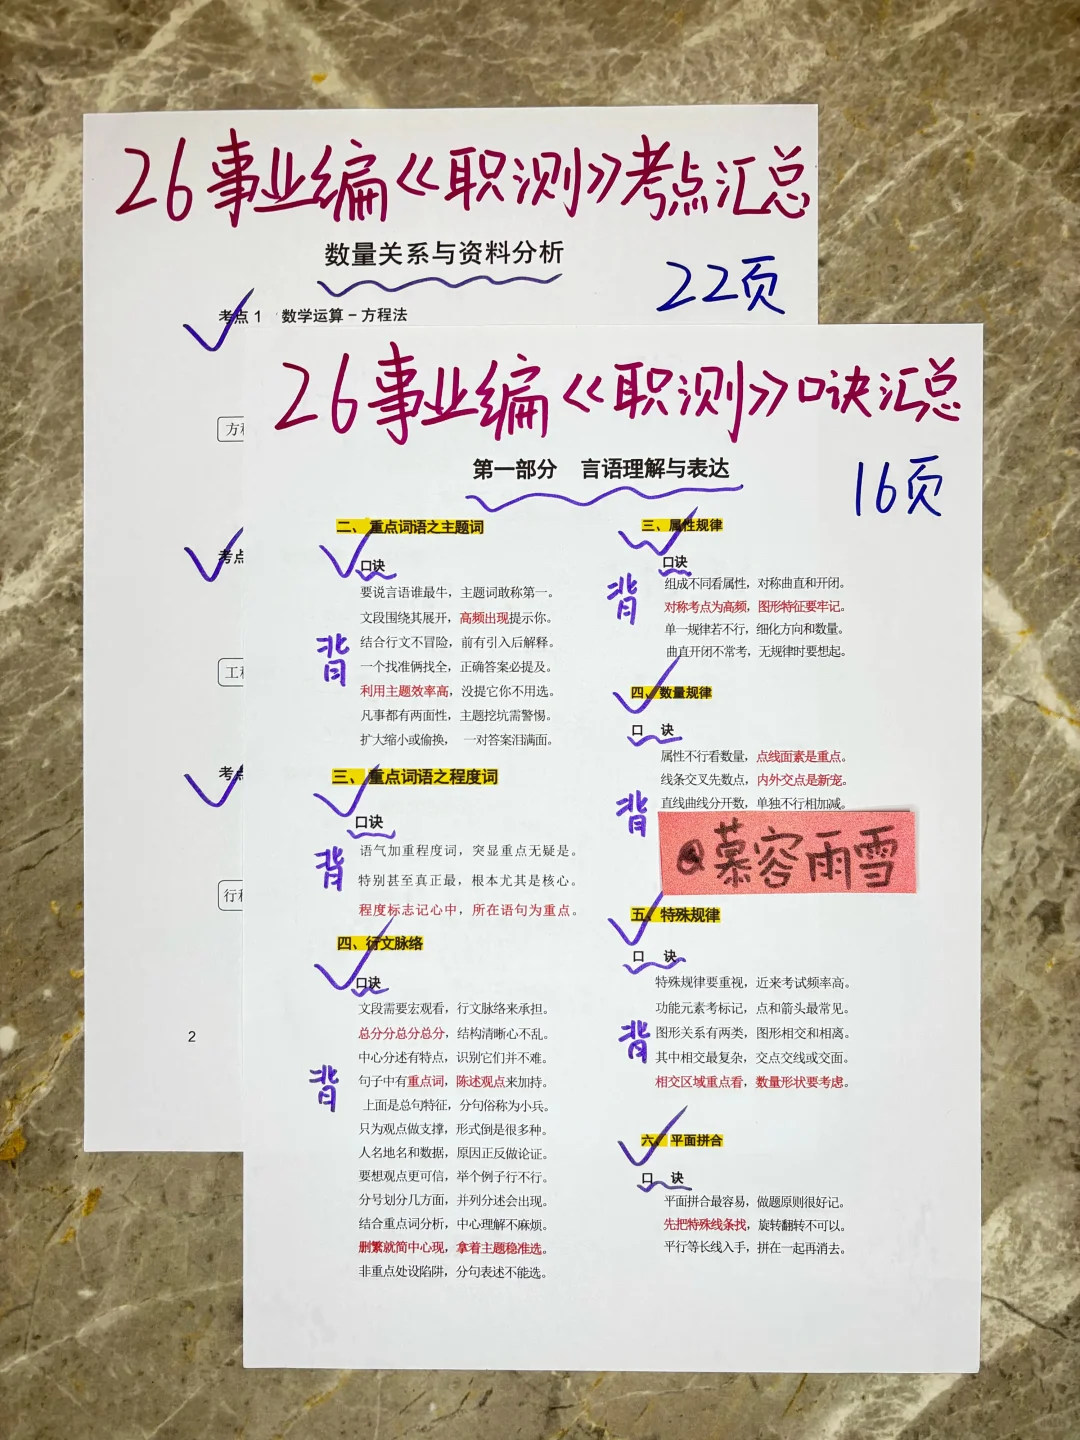 26事业编《职测》考点汇总
数量关系与资料分析
22页
考点1 数学运算－方程法
方程
考点
工程
考点
行程
2
26事业编《职测》口诀汇总
第一部分 言语理解与表达
16页
二、重点词语之主题词
口诀
背
要说言语谁最牛，主题词敢称第一。
文段围绕其展开，高频出现提示你。
结合行文不冒险，前有引入后解释。
一个找准俩找全，正确答案必提及。
利用主题效率高，没提它你不用选。
凡事都有两面性，主题挖坑需警惕。
扩大缩小或偷换，一对答案泪满面。
三、重点词语之程度词
口诀
背
语气加重程度词，突显重点无疑是。
特别甚至真正最，根本尤其是核心。
程度标志记心中，所在语句为重点。
四、行文脉络
口诀
背
文段需要宏观看，行文脉络来承担。
总分分总分总分，结构清晰心不乱。
中心分述有特点，识别它们并不难。
句子中有重点词，陈述观点来加持。
上面是总句特征，分句俗称为小兵。
只为观点做支撑，形式倒是很多种。
人名地名和数据，原因正反做论证。
要想观点更可信，举个例子行不行。
分号划分几方面，并列分述会出现。
结合重点词分析，中心理解不麻烦。
删繁就简中心现，拿着主题稳准选。
非重点处设陷阱，分句表述不能选。
三、属性规律
口诀
背
组成不同看属性，对称曲直和开闭。
对称考点为高频，图形特征要牢记。
单一规律若不行，细化方向和数量。
曲直开闭不常考，无规律时要想起。
四、数量规律
口 诀
背
属性不行看数量，点线面素是重点。
线条交叉先数点，内外交点是新宠。
直线曲线分开数，单独不行相加减。
@慕容雨雪
五、特殊规律
口 诀
背
特殊规律要重视，近来考试频率高。
功能元素考标记，点和箭头最常见。
图形关系有两类，图形相交和相离。
其中相交最复杂，交点交线或交面。
相交区域重点看，数量形状要考虑。
六、平面拼合
口 诀
平面拼合最容易，做题原则很好记。
先把特殊线条找，旋转翻转不可以。
平行等长线入手，拼在一起再消去。